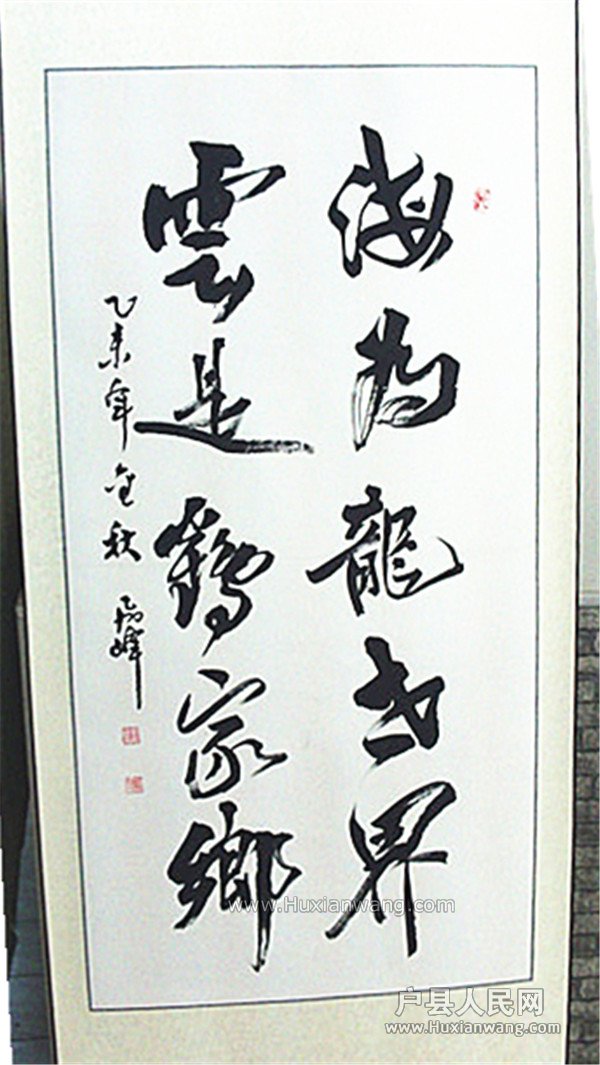 海为龍世界
雲是鶴家鄉
乙未年金秋
www.Huxianwang.com
户县人民网
www.Huxianwang.com